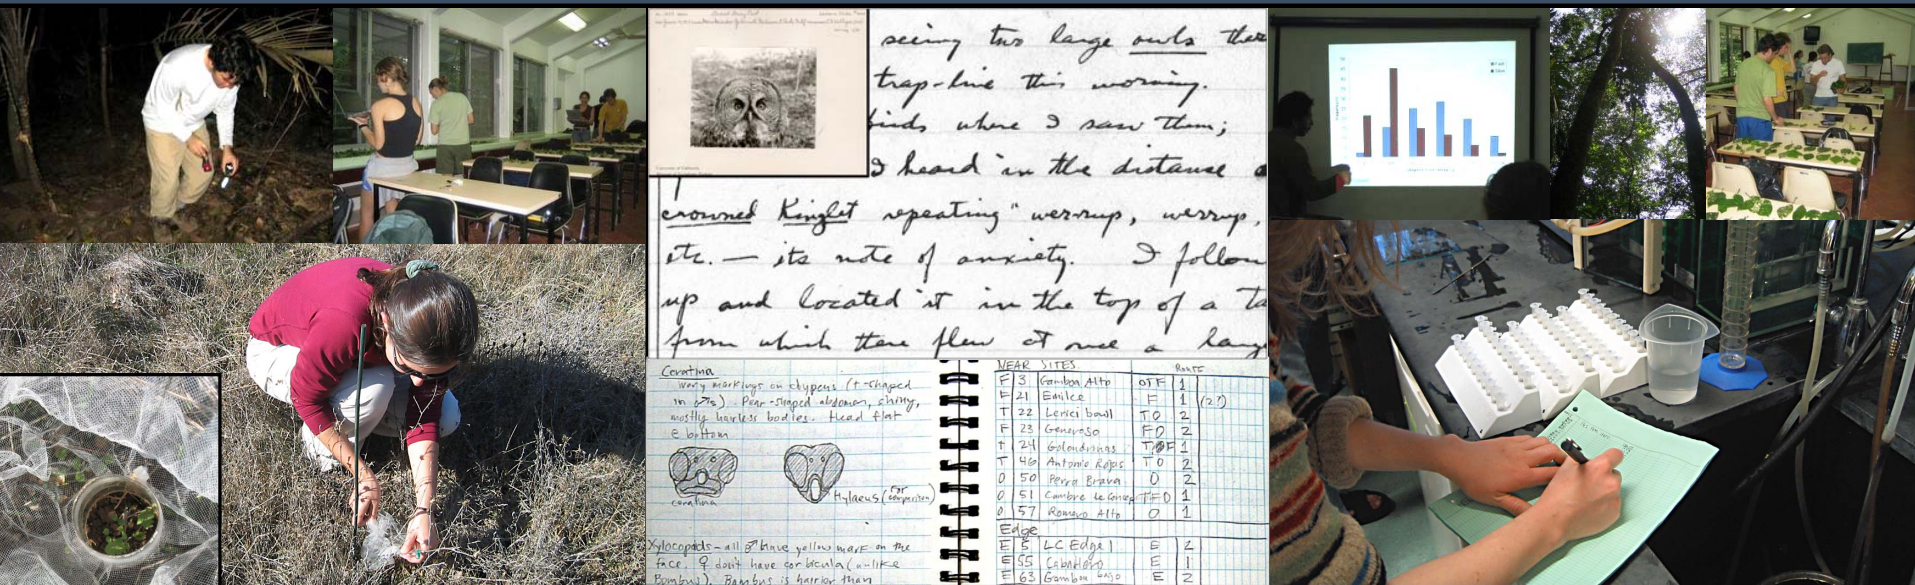 seeing two large owls ther
trap-line this morning.
birds where I saw them;
I heard in the distance a
crowned Kinglet repeating "wer-rup, werrup,
etc. — its note of anxiety. I follow
up and located it in the top of a ta
from which there flew at once a larg
Ceratina
wavy markings on clypeus (t-shaped
in ♂'s). Pear-shaped abdomen, shiny,
mostly hairless bodies. Head flat
@ bottom
ceratina
Hylaeus (for comparison)
Xylocopids - all ♂ have yellow mark on the
face. ♀ don't have corbicula (unlike
Bombus). Bombus is hairier than
NEAR SITES Route
F 3 Gamboa Alto OTF 1
F 21 Emilce F 1 (2?)
T 22 Lerici bowl TO 2
F 23 Generoso FO 2
T 24 Golondrinas 1
T 46 Antonio Rojas TO 2
O 50 Perro Bravo O 2
O 51 TFO 1
O 57 Romero Alto O 1
Edge
E 5 LC Edge 1 E 2
E 55 Caballero E 1
E 63 Gamboa bajo E 2